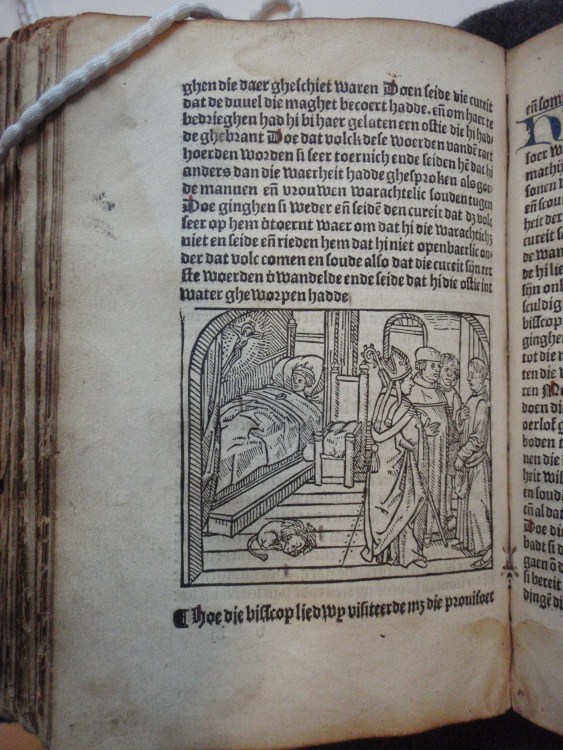 ghen die daer gheschiet waren Doen seide die cureit
dat de duuel die maghet becoert hadde. en̄ om haer te
bedrieghen had hi bi haer gelaten een ostie die hi had
de ghebrant Doe dat volck dese woerden vandē
hoerden worden si seer toernich ende seiden hē dat hi
anders dan die waerheit hadde ghesproken als goe
de mannen en̄ vrouwen warachtelic souden tugen
Doe ginghen si weder en̄ seidē den cureit dat dz volc
seer op hem v̄toernt waer om dat hi die warachtichz
niet en seide en̄ rieden hem dat hi niet openbaerlic on
der dat volc comen en soude also dat die cureit sijn eer
ste woerden v̄wandelde ende seide dat hi die ostie int
water gheworpen hadde
¶ Hoe die bisscop lied wy visiteerde mz die prouisoer
en̄ som
soer w
mathij
sonen
en̄ scou
heit der
cureit s
de wan
de hi lie
sijn onb
sculdig
bisscop
ginghe
tot die
ten die
ren
doen di
oerlof g
boden t
nen die
heit wis
en soud
en̄ al dat
Doe die
badt si d
gaen
si bereit
dingē di